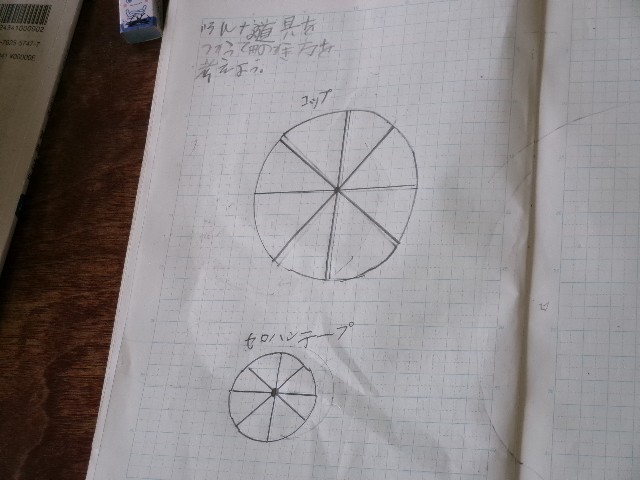 いろんな道具を
つかって円のかき方を
考えよう。
コップ
セロハンテープ